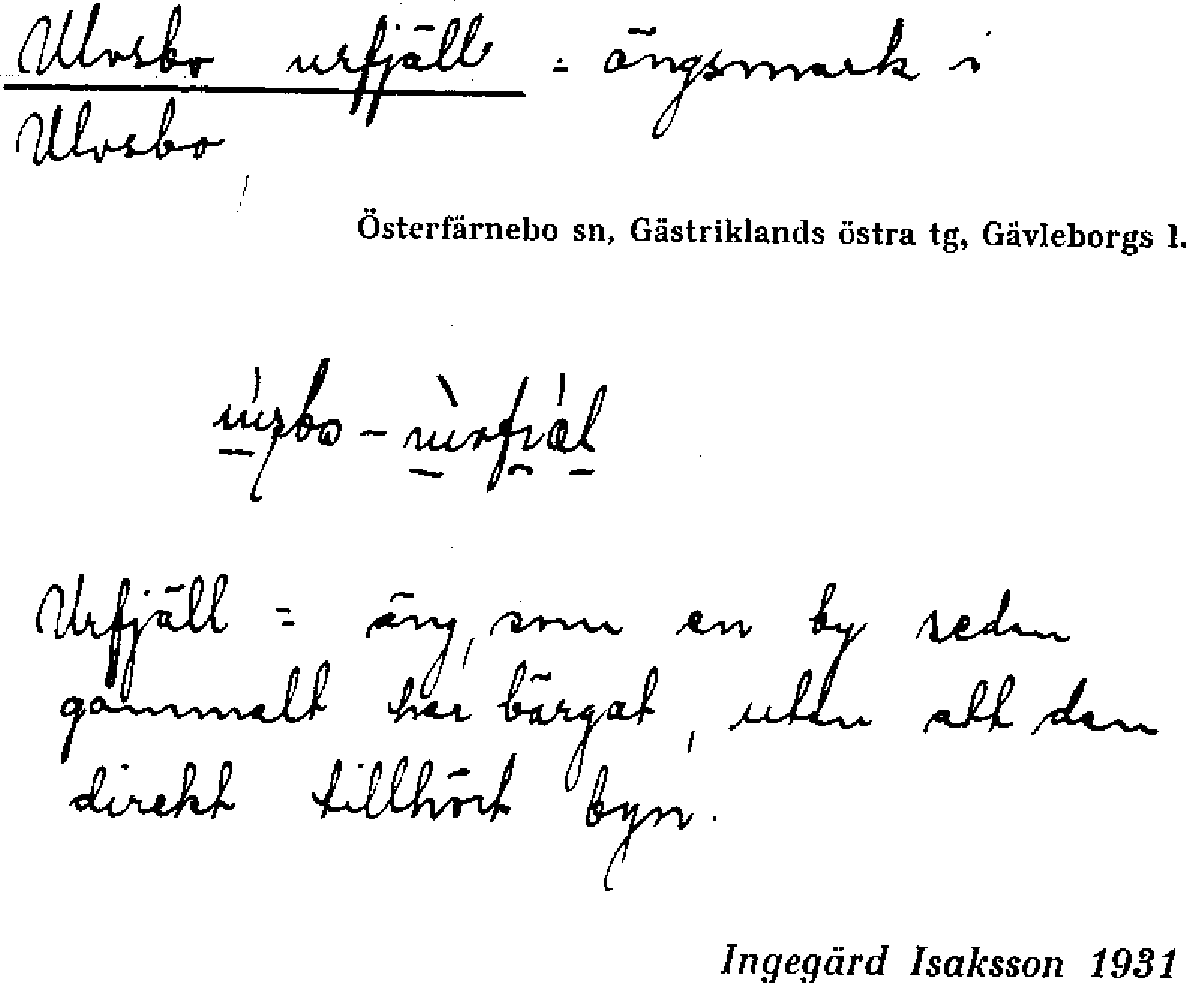 Ulvsbo urfjäll = ängsmark i
Ulvsbo
Österfärnebo sn, Gästriklands östra tg, Gävleborgs l.
Urfjäll = äng, som en by sedan
gammalt har bärgat, utan att den
direkt tillhört byn.
Ingegärd Isaksson 1931